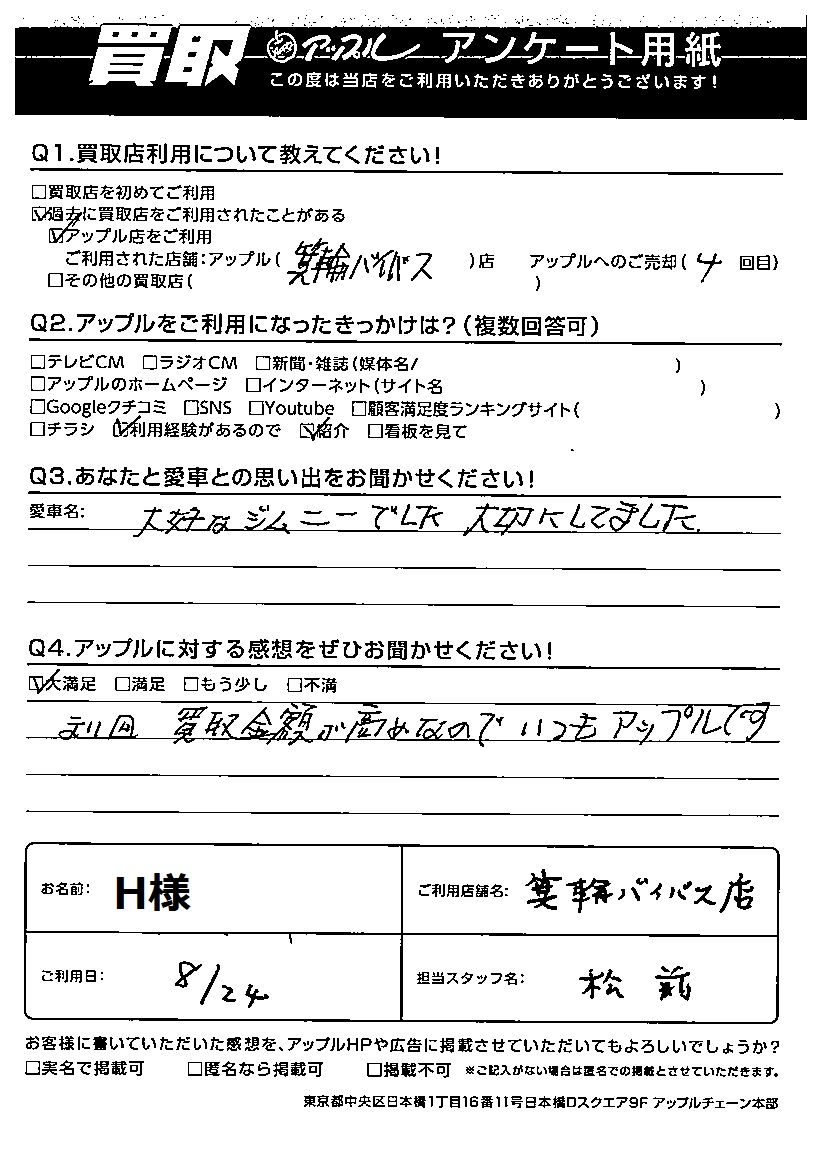 買取 アップル アンケート用紙
この度は当店をご利用いただきありがとうございます!
Q1.買取店利用について教えてください!
□買取店を初めてご利用
☑過去に買取店をご利用されたことがある
☑アップル店をご利用
ご利用された店舗:アップル( 箕輪バイパス )店 アップルへのご売却( 4 回目)
□その他の買取店( )
Q2.アップルをご利用になったきっかけは?(複数回答可)
□テレビCM □ラジオCM □新聞・雑誌(媒体名/ )
□アップルのホームページ □インターネット(サイト名 )
□Googleクチコミ □SNS □Youtube □顧客満足度ランキングサイト( )
□チラシ ☑利用経験があるので ☑紹介 □看板を見て
Q3.あなたと愛車との思い出をお聞かせください!
愛車名: 大好なジムニーでした 大切にしてました
Q4.アップルに対する感想をぜひお聞かせください!
☑大満足 □満足 □もう少し □不満
買取金額が高めなので いつもアップルです
お名前: H様 ご利用店舗名: 箕輪バイパス店
ご利用日: 8/24 担当スタッフ名: 松前
お客様に書いていただいた感想を、アップルHPや広告に掲載させていただいてもよろしいでしょうか?
□実名で掲載可 □匿名なら掲載可 □掲載不可 ※ご記入がない場合は匿名での掲載とさせていただきます。
東京都中央区日本橋1丁目16番11号日本橋Dスクエア9F アップルチェーン本部